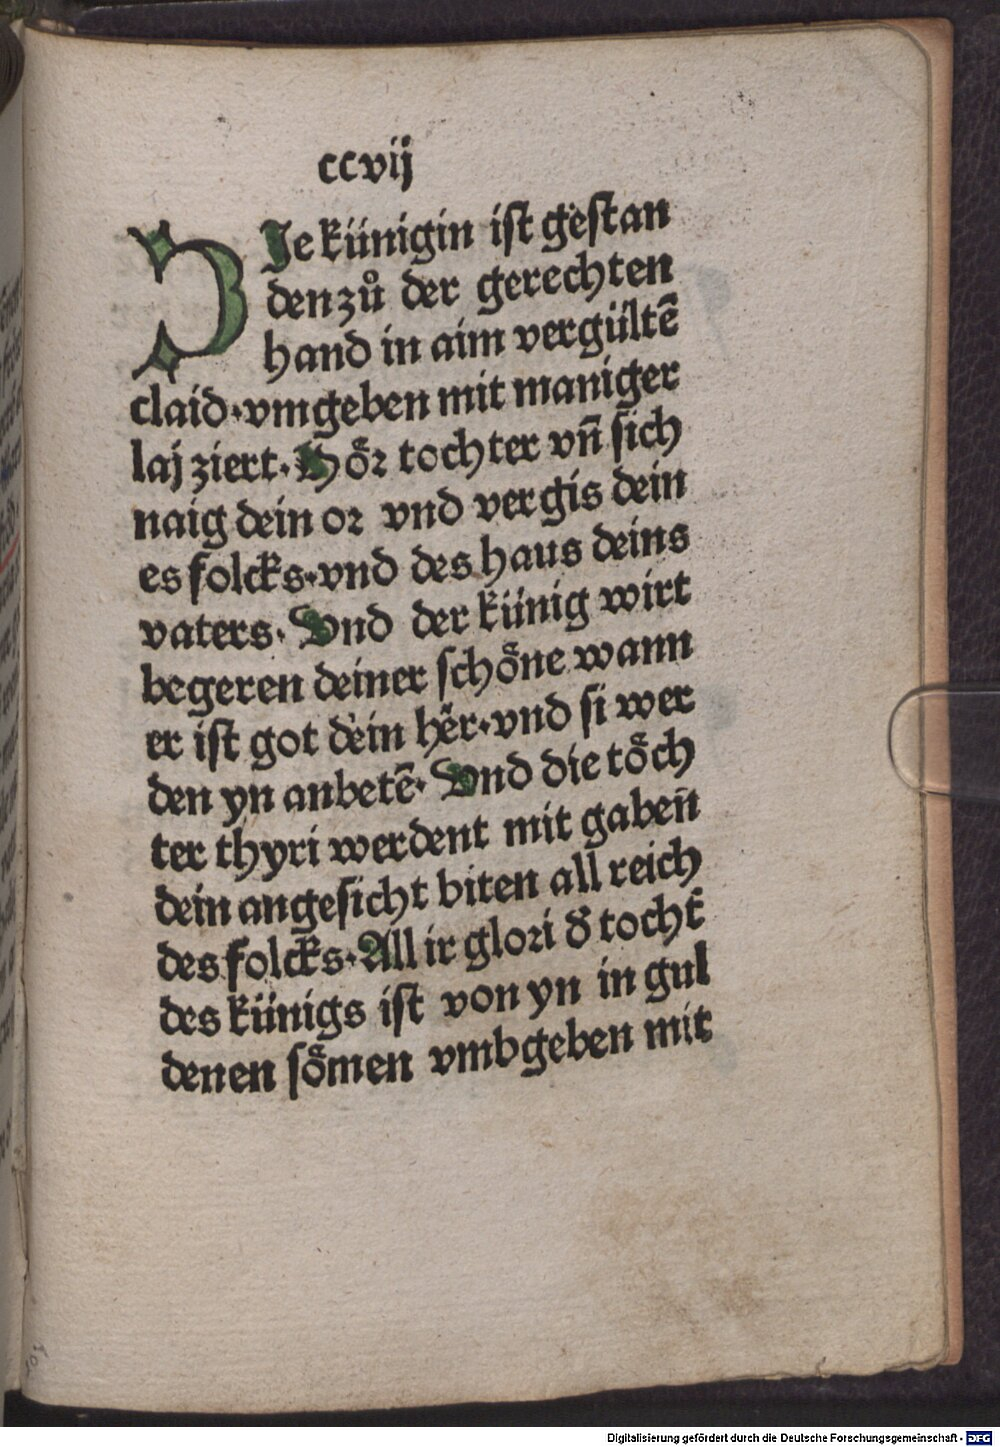 ccvij
DJe künigin ist gestan
den zů der gerechten
hand in aim vergültē
claid·vmgeben mit maniger
laj ziert·Hoͤꝛ tochter vn̄ sich
naig dein oꝛ vnd vergis dein
es folcks·vnd des haus deins
vaters·Vnd der künig wirt
begeren deiner schoͤne wann
er ist got dein heͤr·vnd si wer
den yn anbetē·Vnd die toͤch
ter thyri werdent mit gaben
dein angesicht biten all reich
des folcks·All ir gloꝛi d̄ tocht̄
des künigs ist von yn in gul
denen soͤmen vmbgeben mit
Digitalisierung gefördert durch die Deutsche Forschungsgemeinschaft - DFG